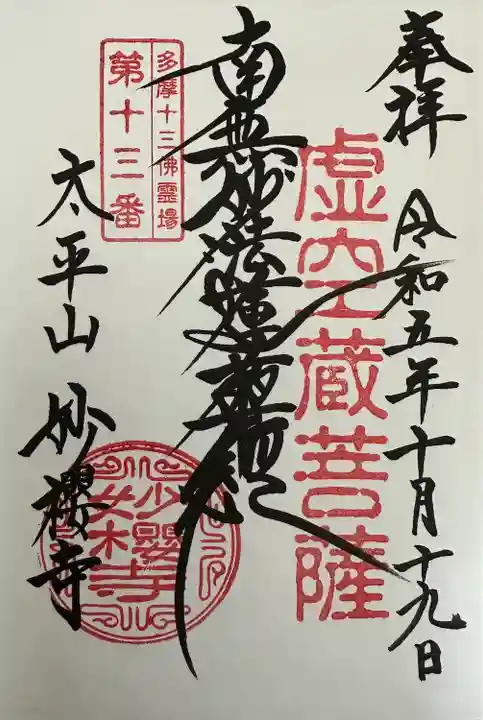 奉拝
令和五年十月十九日
虚空蔵菩薩
南無妙法蓮華経
多摩十三佛霊場
第十三番
太平山 妙櫻寺
妙櫻寺